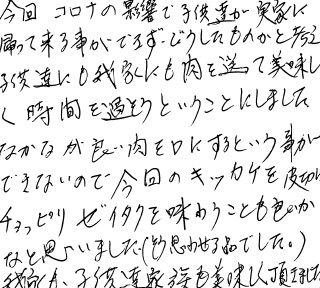 今回 コロナの影響で子供達が実家に
帰って来る事ができず、どうしたものかと考え
子供達にも我家にも肉を送って美味し
く時間を過そうということにしました
なかなか良い肉を口にするという事が
できないので今回のキッカケを皮切に
チョッピリ ゼイタクを味わうことも良いか
なと思いました。(そう思わせる品でした。)
我家も、子供達家族も美味しく頂きました